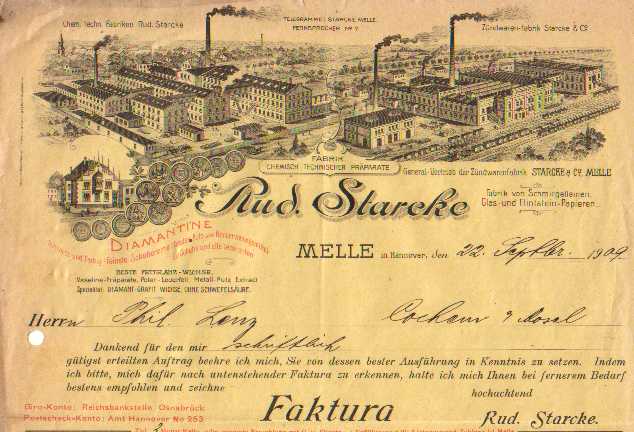 Chem. Techn. Fabriken Rud. Starcke
TELEGRAMME: STARCKE MELLE.
FERNSPRECHER No 7.
Zündwaren-fabrik Starcke & Co.
FABRIK
CHEMISCH TECHNISCHER PRÄPARATE
General-Vertrieb der Zündwarenfabrik STARCKE & Co. MELLE
Rud. Starcke
Fabrik von Schmirgelleinen,
Glas-und Flintstein-Papieren.
DIAMANTINE
MELLE in Hannover, den 22. Septbr. 1909
BESTE FETTGLANZ-WICHSE.
Vaseline-Präparate, Poter-Lederfett, Metall-Putz Extract
Spezialität: DIAMANT-GRAFIT WICHSE OHNE SCHWEFELSÄURE.
Herrn Phil. Lenz Cochem a/Mosel
Dankend für den mir schriftlich
gütigst erteilten Auftrag beehre ich mich, Sie von dessen bester Ausführung in Kenntnis zu setzen. Indem
ich bitte, mich dafür nach untenstehender Faktura zu erkennen, halte ich mich Ihnen bei fernerem Bedarf
bestens empfohlen und zeichne hochachtend
Giro-Konto: Reichsbankstelle Osnabrück
Postscheck-Konto: Amt Hannover No 253
Faktura Rud. Starcke.